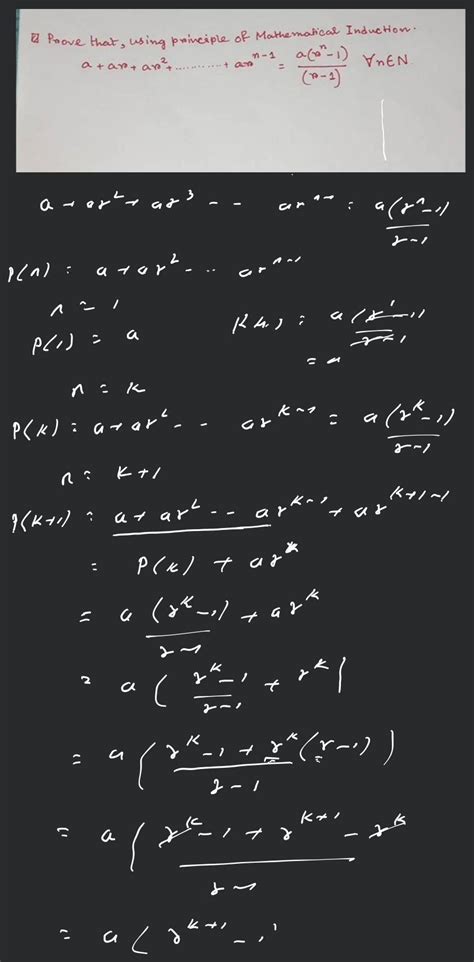 Prove that, using principle of Mathematical Induction.
a + ar + ar² + ............ + ar^(n-1) = a(r^n - 1)/(r-1) ∀n∈N
a + ar² + ar³ - - ar^(n-1) = a(r^n - 1)/(r-1)
P(n) : a + ar² - .. ar^(n-1)
n = 1
P(1) = a R.H.S = a(r^1 - 1)/(r-1)
= a
n = k
P(k) : a + ar² - - ar^(k-1) = a(r^k - 1)/(r-1)
n = k+1
P(k+1) : a + ar² - - ar^(k-1) + ar^(k+1-1)
= P(k) + ar^k
= a(r^k - 1)/(r-1) + ar^k
= a((r^k - 1)/(r-1) + r^k)
= a((r^k - 1 + r^k(r-1))/(r-1))
= a((r^k - 1 + r^(k+1) - r^k)/(r-1))
= a(r^(k+1) - 1